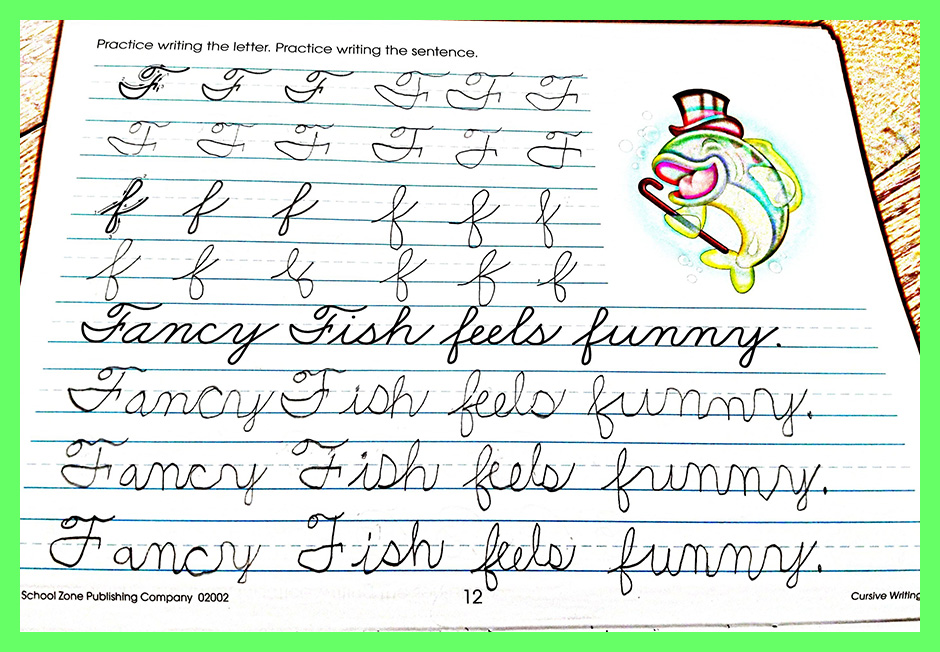 Practice writing the letter. Practice writing the sentence.
F F F F F F
F F F F F F
f f f f f f
f f f f f f
Fancy Fish feels funny.
Fancy Fish feels funny.
Fancy Fish feels funny.
Fancy Fish feels funny.
School Zone Publishing Company 02002 12 Cursive Writing